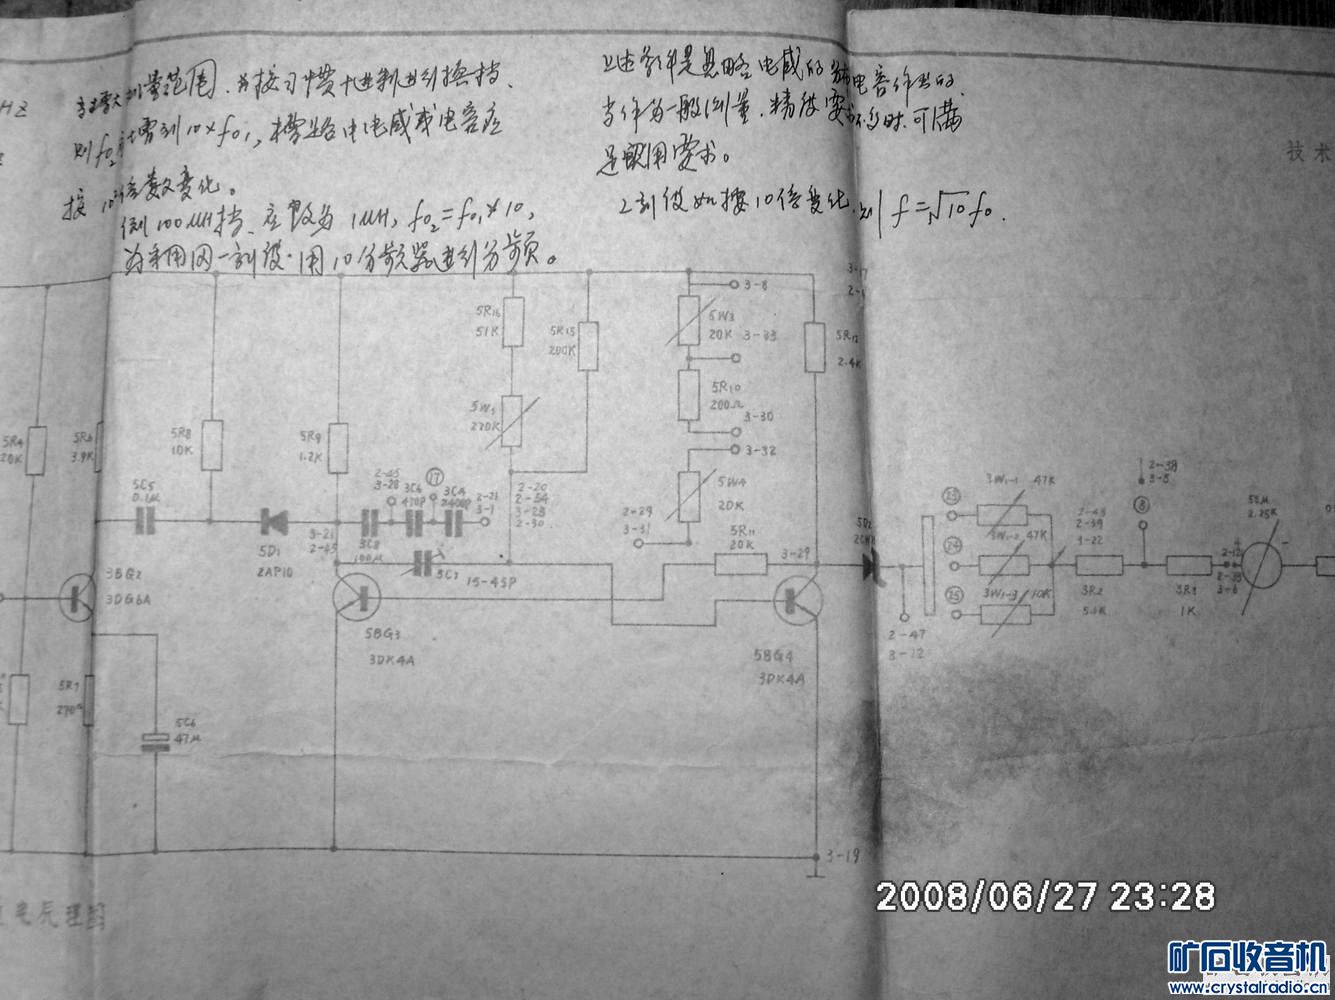 HZ
测量范围，为按习惯十进制进行换挡，
则 f02 需到10×f01，槽路中电感或电容应
按 10² 倍数变化。
例100μH挡，应改为 1μH，f02=f01×10，
为采用同一刻度，用10分频器进行分频。
上述条件是忽略电感的分布电容作出的，
当作为一般测量，精度要求不高时，可满
足实用要求。
刻度如按10倍变化，则 f=√10 f0.
技术
3-17
5R16
51K
5R15
200K
3-8
5W3
20K
3-33
5R10
200Ω
3-30
3-32
5W4
20K
5R12
2.4K
5R4
20K
5R6
3.9K
5R8
10K
5R9
1.2K
5W5
270K
5C5
0.1μ
5D1
2AP10
2-45
3-28
17
3C6
470P
3C4
2400P
2-21
3-1
2-20
2-54
3-23
2-30
3-21
2-43
3C8
100μ
3C7
15-45P
2-29
3-31
5R11
20K
3-29
5D2
23
24
25
3W1-1
47K
3W1-2
47K
3W1-3
10K
2-43
2-39
3-22
3R2
5.1K
2-38
3-5
8
3R3
1K
3-6
50μ
2.25K
2-47
3-12
5BG2
3DG6A
5BG3
3DK4A
5BG4
3DK4A
5R7
270Ω
5C6
47μ
3-19
电原理图
2008/06/27 23:28
矿石收音机
www.crystalradio.cn